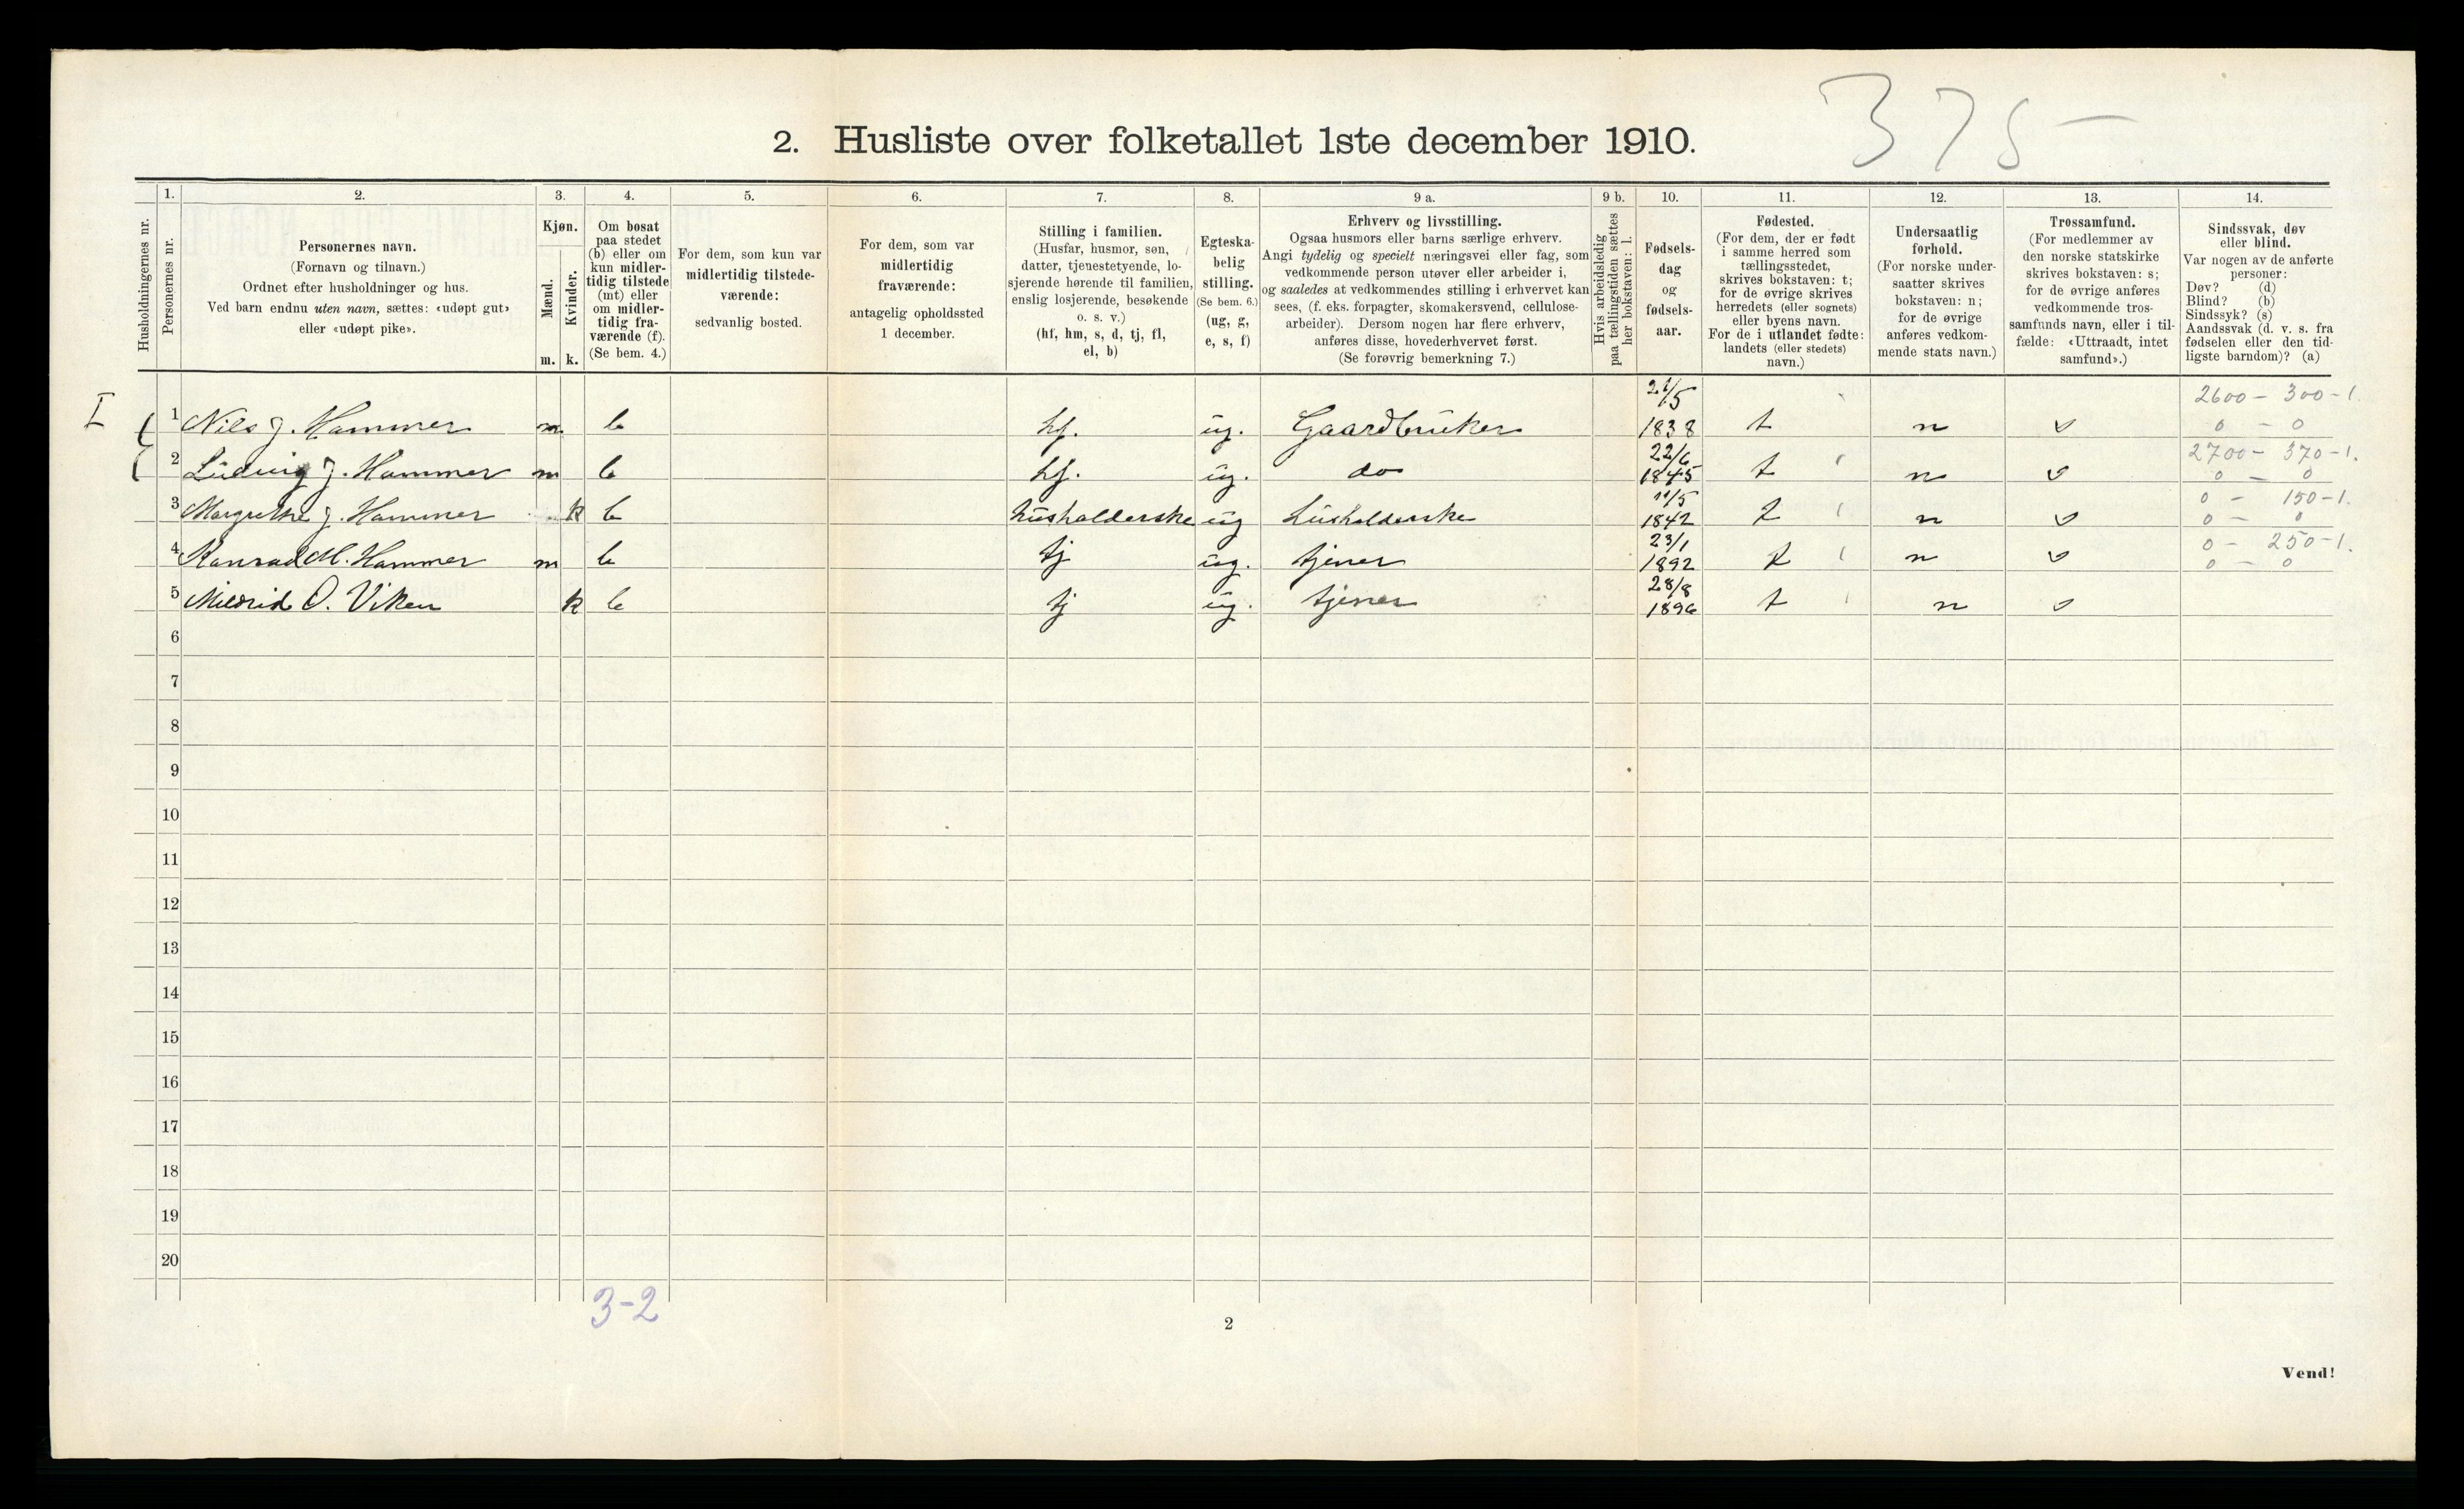 375-
2. Husliste over folketallet 1ste december 1910.
Husholdningernes nr.
1.
Personernes nr.
2.
Personernes navn.
(Fornavn og tilnavn.)
Ordnet efter husholdninger og hus.
Ved barn endnu uten navn, sættes: «udøpt gut»
eller «udøpt pike».
3.
Kjøn.
Mænd.
Kvinder.
m. k.
4.
Om bosat
paa stedet
(b) eller om
kun midler-
tidig tilstede
(mt) eller
om midler-
tidig fra-
værende (f).
(Se bem. 4.)
5.
For dem, som kun var
midlertidig tilstede-
værende:
sedvanlig bosted.
6.
For dem, som var
midlertidig
fraværende:
antagelig opholdssted
1 december.
7.
Stilling i familien.
(Husfar, husmor, søn,
datter, tjenestetyende, lo-
sjerende hørende til familien,
enslig losjerende, besøkende
o. s. v.)
(hf, hm, s, d, tj, fl,
el, b)
8.
Egteska-
belig
stilling.
(Se bem. 6.)
(ug, g,
e, s, f)
9 a.
Erhverv og livsstilling.
Ogsaa husmors eller barns særlige erhverv.
Angi tydelig og specielt næringsvei eller fag, som
vedkommende person utøver eller arbeider i,
og saaledes at vedkommendes stilling i erhvervet kan
sees, (f. eks. forpagter, skomakersvend, cellulose-
arbeider). Dersom nogen har flere erhverv,
anføres disse, hovederhvervet først.
(Se forøvrig bemerkning 7.)
9 b.
Hvis arbeidsledig
paa tællingstiden sættes
her bokstaven: l.
10.
Fødsels-
dag
og
fødsels-
aar.
11.
Fødested.
(For dem, der er født
i samme herred som
tællingsstedet,
skrives bokstaven: t;
for de øvrige skrives
herredets (eller sognets)
eller byens navn.
For de i utlandet fødte:
landets (eller stedets)
navn.)
12.
Undersaatlig
forhold.
(For norske under-
saatter skrives
bokstaven: n;
for de øvrige
anføres vedkom-
mende stats navn.)
13.
Trossamfund.
(For medlemmer av
den norske statskirke
skrives bokstaven: s;
for de øvrige anføres
vedkommende tros-
samfunds navn, eller i til-
fælde: «Uttraadt, intet
samfund».)
14.
Sindssvak, døv
eller blind.
Var nogen av de anførte
personer:
Døv? (d)
Blind? (b)
Sindssyk? (s)
Aandssvak (d. v. s. fra
fødselen eller den tid-
ligste barndom)? (a)
I 1 Nils J. Hammer m b hf. ug. Gaardbruker 21/5 1838 t n s 2600 - 300 - 1.
0 - 0
2 Ludvig J. Hammer m b hf. ug. do 22/6 1845 t n s 2700 - 370 - 1.
0 - 0
3 Margrethe J. Hammer k b husholderske ug husholderske 11/5 1842 t n s 0 - 150 - 1.
0 - 0
4 Konrad M. Hammer m b tj ug. tjener 23/1 1892 t n s 0 - 250 - 1.
0 - 0
5 Mildrid O. Viken k b tj ug. tjener 28/8 1896 t n s
6
7
8
9
10
11
12
13
14
15
16
17
18
19
20
3-2
2
Vend!